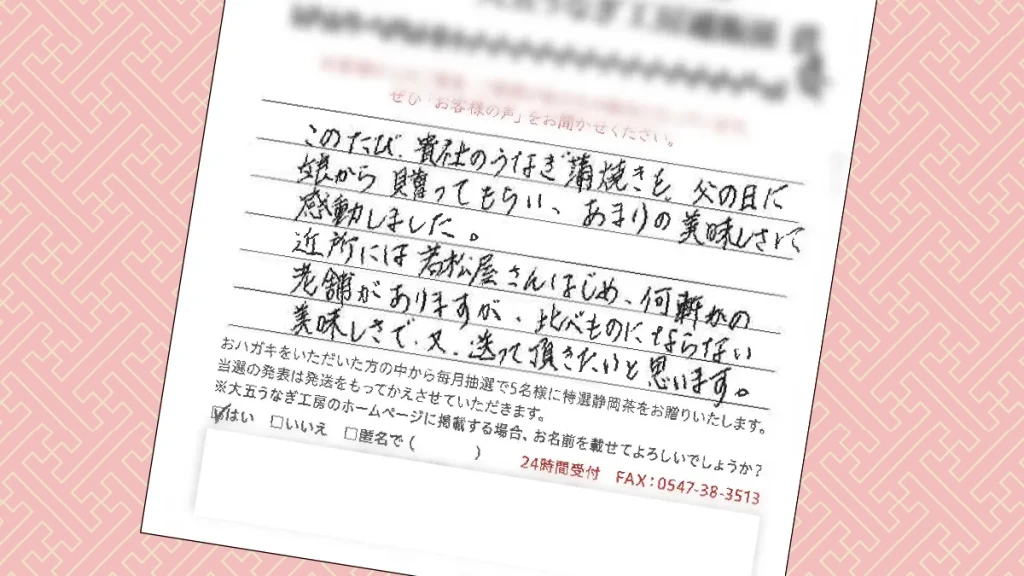 大五うなぎ工房
ぜひ「お客様の声」をお聞かせください。
このたび、貴社のうなぎ蒲焼きを、父の日に
娘から贈ってもらい、あまりの美味しさに
感動しました。
近所には若松屋さんはじめ、何軒かの
老舗がありますが、比べものにならない
美味しさで、又、送って頂きたいと思います。
おハガキをいただいた方の中から毎月抽選で5名様に特選静岡茶をお贈りいたします。
当選の発表は発送をもってかえさせていただきます。
※大五うなぎ工房のホームページに掲載する場合、お名前を載せてよろしいでしょうか？
☑はい □いいえ □匿名で（ ）
24時間受付 FAX：0547-38-3513